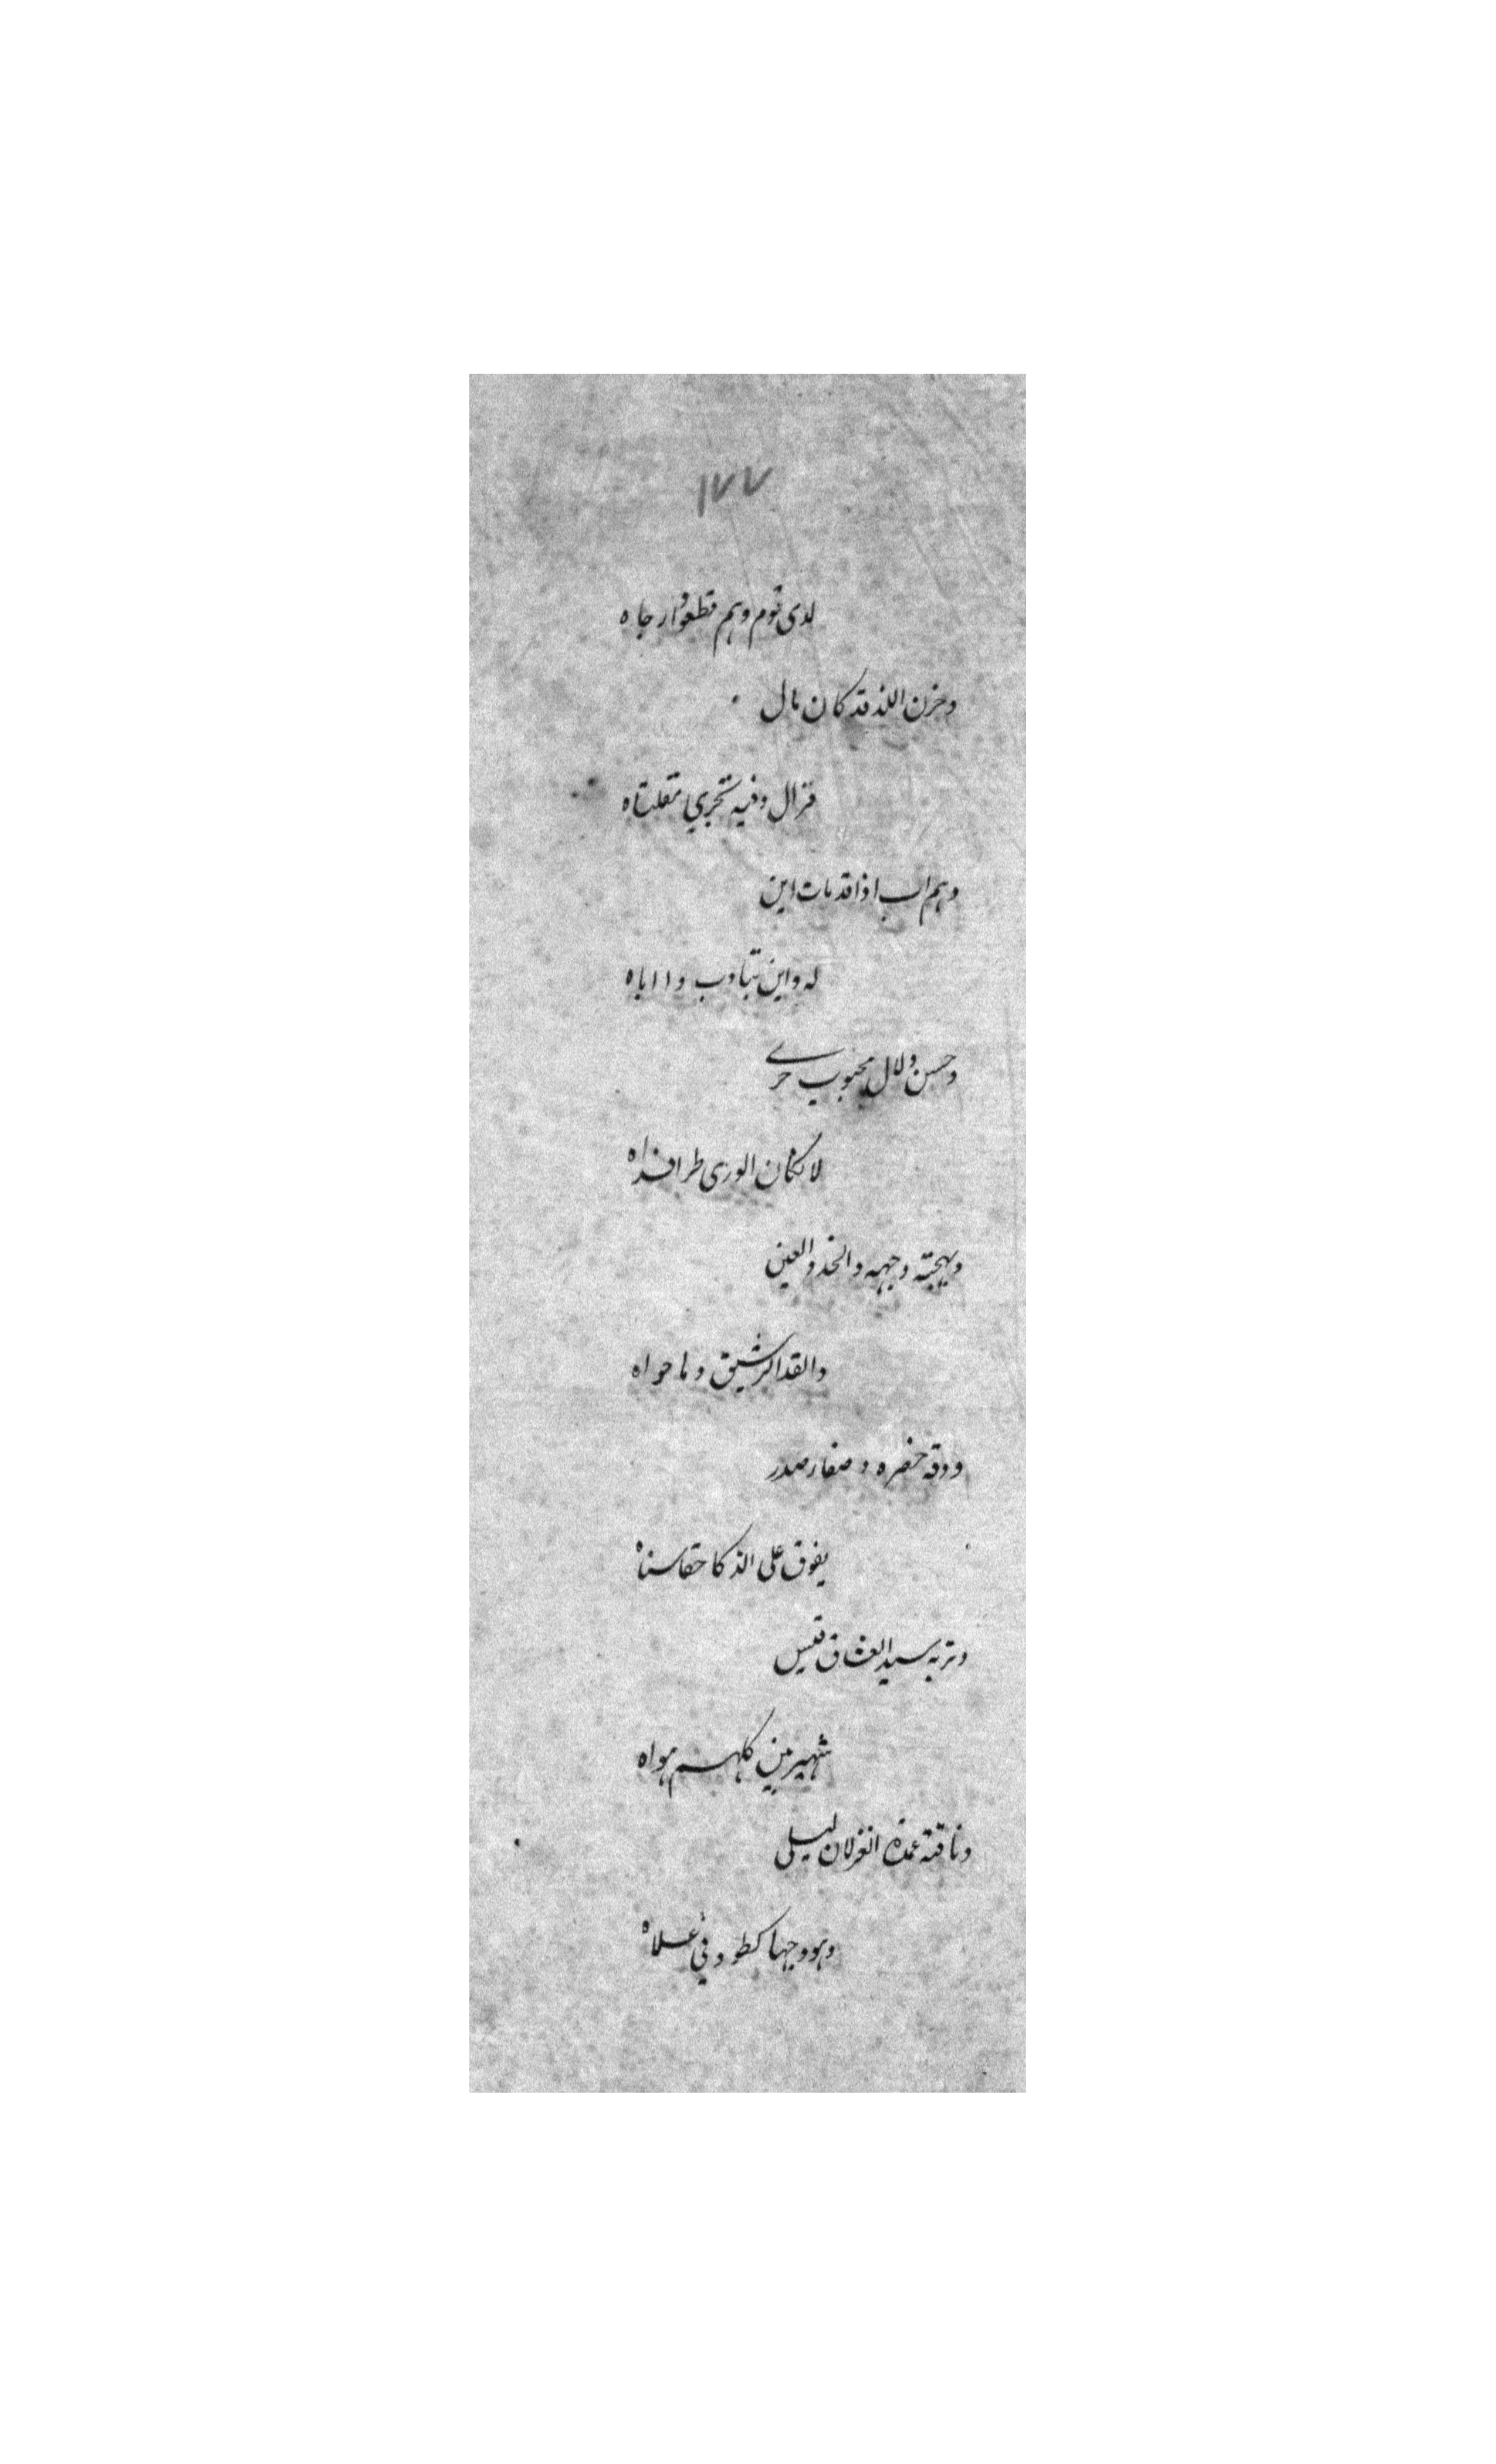 ١٧٧
لدى قوم وهم قطعوا رجاه
وحزن اللذ قد كان مال
فزال وفيه تجري مقلتاه
وهم اب اذا قد مات ابن
له وابن تباوب وا اباه
وحسن دلال محبوب حرى
لا لكان الورى طرا فداه
وبهجته وجهه والخد والعين
والقد الرشيق وما حواه
ودقة خصره وصفا صدر
يفوق على الذكا حقا سناه
وتربة سيد العشاق قيس
شهير بين كلهم هواه
وناقة عمدة الغزلان ليلى
وهودجها كطود في علاه